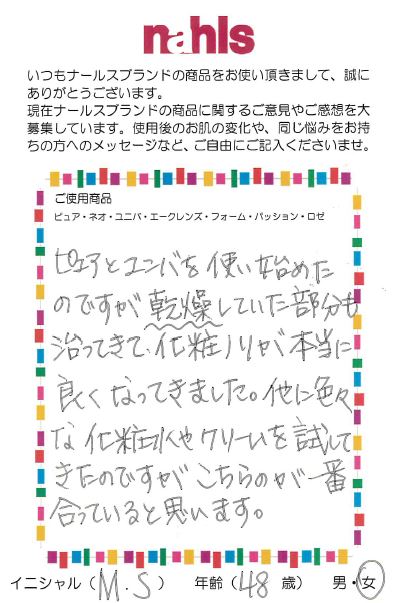 nahls
いつもナールスブランドの商品をお使い頂きまして、誠に
ありがとうございます。
現在ナールスブランドの商品に関するご意見やご感想を大
募集しています。使用後のお肌の変化や、同じ悩みをお持
ちの方へのメッセージなど、ご自由にご記入くださいませ。
ご使用商品
ピュア・ネオ・ユニバ・エークレンズ・フォーム・パッション・ロゼ
ピュアとユニバを使い始めた
のですが乾燥していた部分も
治ってきて、化粧ノリが本当に
良くなってきました。他に色々
な化粧水やクリームを試して
きたのですがこちらのが一番
合っていると思います。
イニシャル（M.S） 年齢（48歳） 男・女